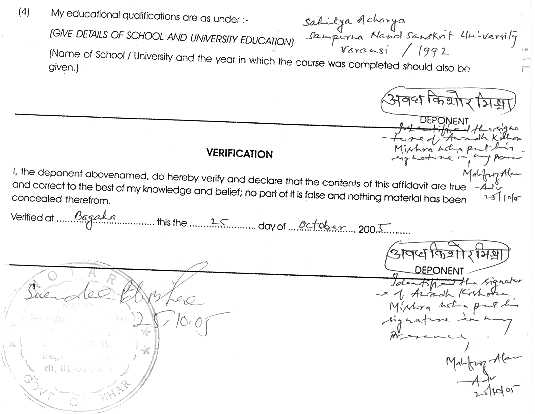 (4) My educational qualifications are as under :- Sahitya Acharya
(GIVE DETAILS OF SCHOOL AND UNIVERSITY EDUCATION) Sampurna Nand Sanskrit University
(Name of School / University and the year in which the course was completed should also be given.) Varansi / 1992
अवध किशोर मिश्रा
DEPONENT
Identified the signa
ture of Awadh Kishor
Mishra who put his
signature in my
VERIFICATION
I, the deponent abovenamed, do hereby verify and declare that the contents of this affidavit are true
and correct to the best of my knowledge and belief; no part of it is false and nothing material has been
concealed therefrom.
25/10/05
Verified at Bagaha this the 25 day of October, 2005
अवध किशोर मिश्रा
DEPONENT
Identified the signatur
e of Awadh Kishore
Mishra who put his
signature in my
Presence
25.10.05
25/10/05
GOVT